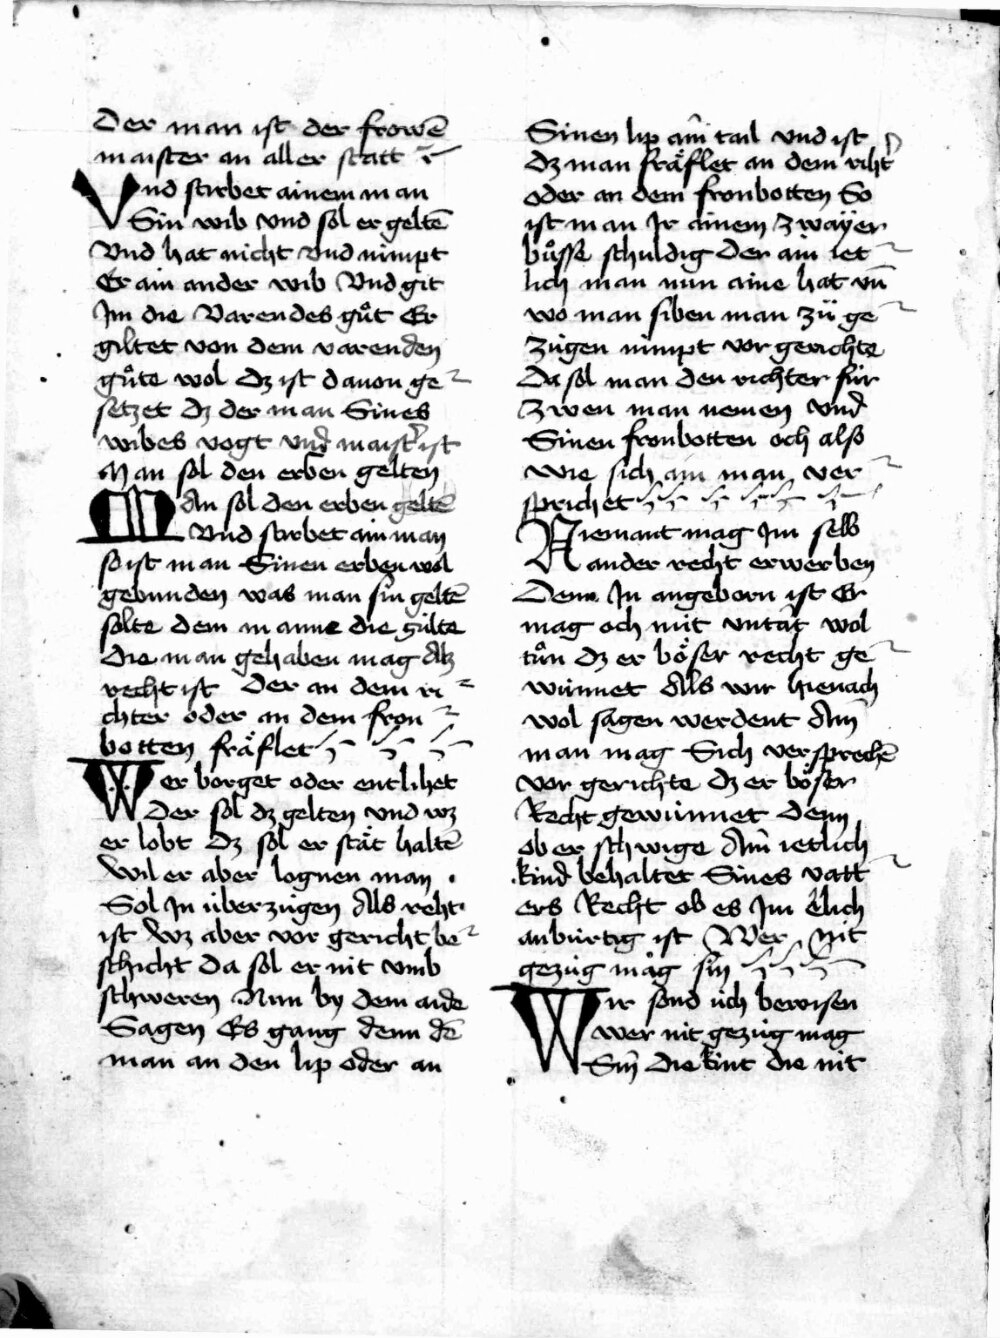 Der man ist der frowē
maister an aller statt
Vnd stirbet ainem man
Sin wib vnd sol er geltē
Vnd hat nicht vnd nimpt
Er ain ander wib Vnd git
Im die Varendes gůt Er
giltet von dem varenden
gůte wol dz ist dauon ge
setzet dz der man Sines
wibes vogt vnd maister ist
Man sol den erben gelten
MAn sol den erben geltē
Vnd stirbet ain man
so ist man Sinen erben wol
gebunden was man sin geltē
sölte dem manne die gülte
die man gehaben mag Alz
recht ist Der an dem ri
chter oder an dem fron
botten fräflet
Wer borget oder entlihet
Der sol dz gelten vnd wz
er lobt Dz sol er stät haltē
Wil er aber lognen man
Sol In überzügen Als reht
ist Wz aber vor gericht be
schicht da sol er nit vmb
schweren Nun by dem aide
Sagen Es gang denn dē
man an den lip oder an
Sinen lip ain tail vnd ist
dz man fräflet an dem riht
oder an dem fronbotten So
ist man Ir ainem zwayer
bůsse schuldig Der ain iet
lich man nun aine hat vn̄
wo man siben man zü ge
zügen nimpt vor gerichte
Da sol man den richter für
zwen man nemen vnd
Sinen fronbotten och also
wie sich ain man ver
sprichet
Niemant mag Im selb
ander recht erwerben
Denn In angeborn ist Er
mag och mit vntät wol
tůn dz er böser recht ge
winnet Als wir hienach
wol sagen werdent Ain
man mag Sich versprechē
vor gerichte dz er böser
Recht gewinnet denn
ob er schwige Ain ietlich
kind behaltet Sines vatt
ers Recht ob es Im elich
anbürtig ist Wer Nit
gezüg mag sin
Wir sond üch bewisen
wer nit gezüg mag
Sin Die kint die nit